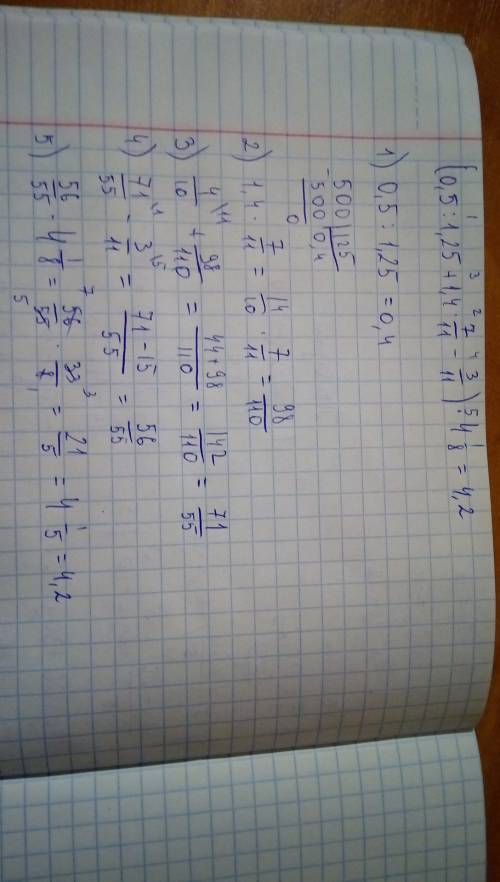 (0,5 : 1,25 + 1,4 · 7/11 − 3/11) · 4 1/8 = 4,2
1 3 2 4 5
1) 0,5 : 1,25 = 0,4
500 | 125
− 500 0,4
0
2) 1,4 · 7/11 = 14/10 · 7/11 = 98/110
3) 4/10 \11 + 98/110 = 44+98/110 = 142/110 = 71/55
4) 71/55 \1 − 3/11 \5 = 71-15/55 = 56/55
5) 56/55 · 4 1/8 = 56/55 · 33/8 = 21/5 = 4 1/5 = 4,2
7 3
5 1